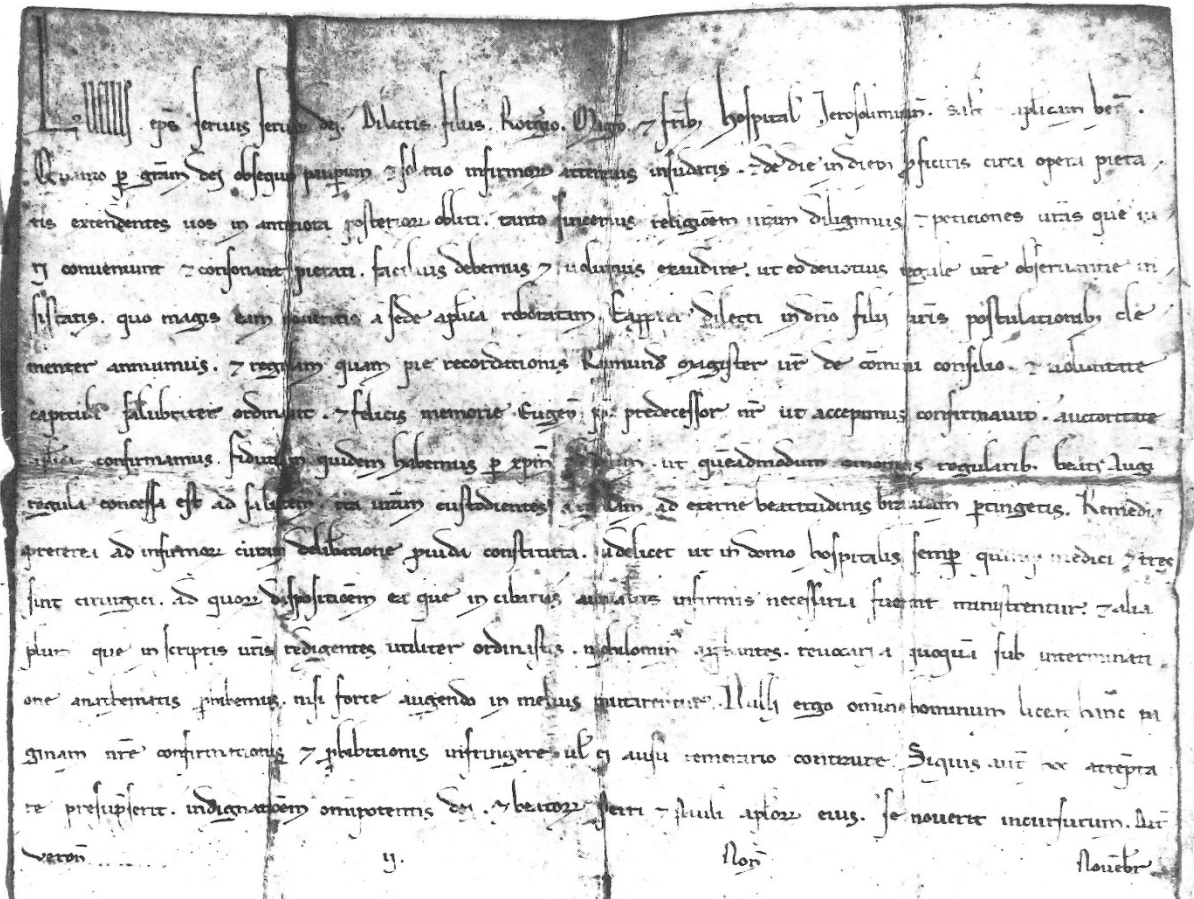 Lucius eps servus servoꝝ dei. Dilectis filiis. Rogerio. Magrō. ⁊ frib; hospital Jerosolimitan̄. Salt ⁊ aplicam ben̄.
Quanto ꝑ grām dei obsequiis pauꝑum ⁊ solatio infirmoꝝ attentius insudatis. ⁊ de die in diem ꝓficitis circa opera pieta
tis extendentes vos in anteriora posterioꝝ obliti. tanto sincerius religiōem vrām diligimus ⁊ peticiones vrās que iu
ri conveniunt ⁊ consonant pietati. facilius debemus ⁊ volumus exaudire. ut eo devotius regule vrē observantie in
sistatis. quo magis eam noveritis a sede aplica roboratam. Eapropter dilecti in dn̄o filii vrīs postulationib; cle
menter annuimus. ⁊ regulam quam pie recordationis Raimund magister vr̄ de cōmuni consilio. ⁊ voluntate
capituli salubriter ordinavit. ⁊ felicis memorie Eugen̄ pp predecessor nr̄ ut accepimus confirmavit. auctoritate
aplica confirmamus. fiduciam quidem habemus ꝑ xp̄m ut quēadmodum regularib. beati Augꝰ
regula concessa est ad salutem. ita vrām custodientes ad eterne beatitudinis bravium ꝑtingetis. Remedia
preterea ad infirmoꝝ curam deliberatione ꝓvida constituta. videlicet ut in domo hospitalis semꝑ quinqꝫ medici ⁊ tres
sint cirurgici. ad quoꝝ dispositiōem ea que in cibariis infirmis necessaria fuerint ministrentur. ⁊ alia
plura que in scriptis vrīs redigentes utiliter ordinastis. nichilomin̄ revocari a quoquā sub interminati
one anathematis ꝓhibemus. nisi forte augendo in melius mutarentur. Nulli ergo omīno hominum liceat hanc pa
ginam nrē confirmationis ⁊ ꝓhibitionis infringere vl ei ausu temerario contraire. Siquis aut̄ attempta
re presumpserit. indignatiōem omīpotentis dei. ⁊ beatoꝝ Petri ⁊ Pauli aploꝝ eius. se noverit incursurum. Dat̄
veron̄ ij. Non̄ Novēbr